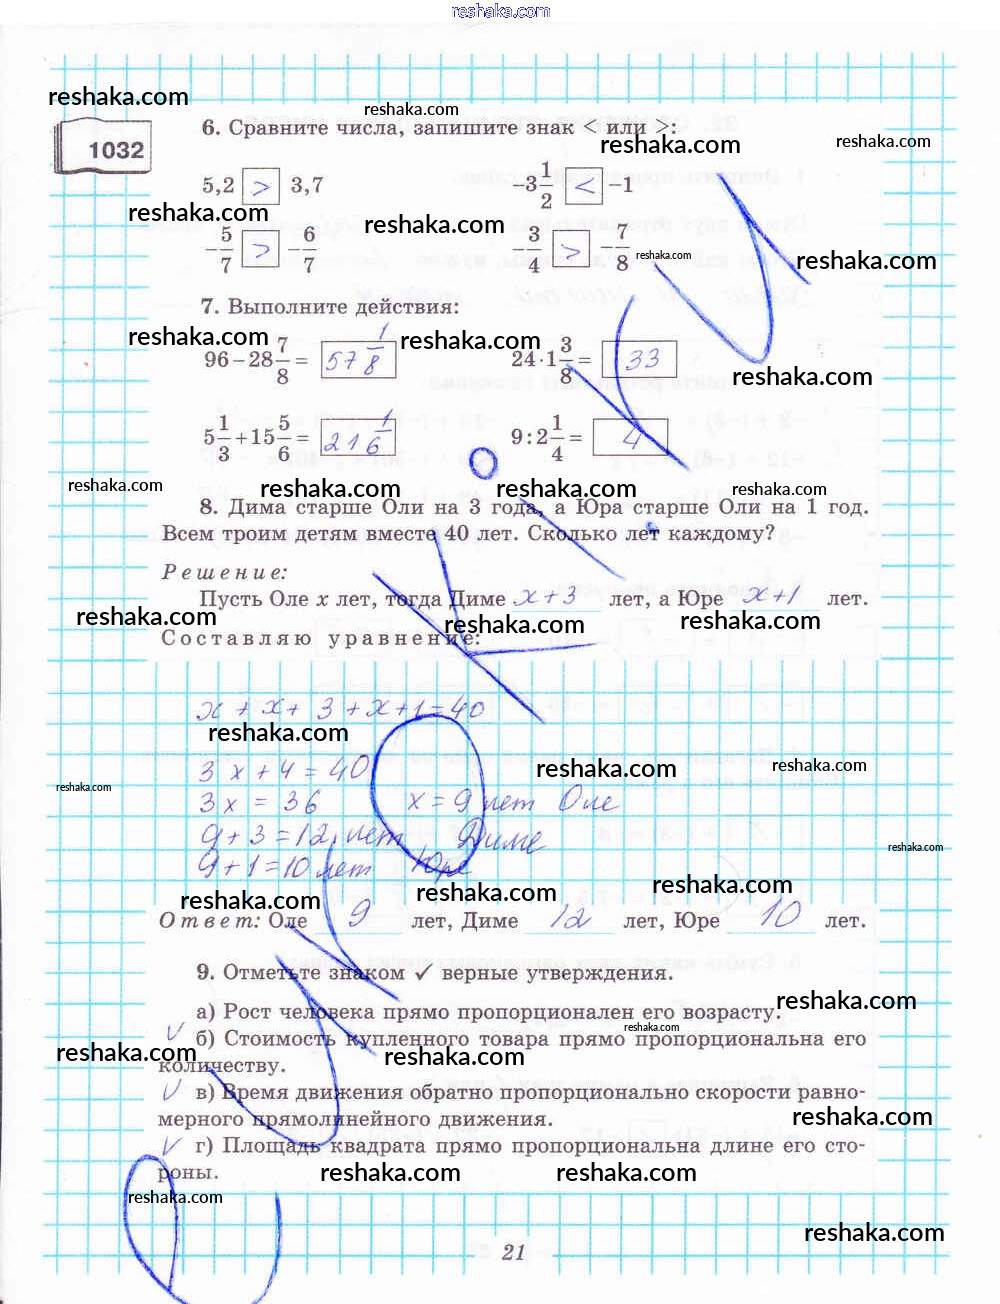 reshaka.com
reshaka.com
reshaka.com
1032
6. Сравните числа, запишите знак < или >:
reshaka.com
5,2 > 3,7 -3 1/2 < -1
reshaka.com reshaka.com
-5/7 > -6/7 -3/4 > -7/8
reshaka.com reshaka.com
7. Выполните действия:
reshaka.com reshaka.com
96-28 7/8 = 57 1/8 24·1 3/8 = 33
reshaka.com
5 1/3 + 15 5/6 = 21 1/6 9:2 1/4 = 4
reshaka.com reshaka.com reshaka.com
8. Дима старше Оли на 3 года, а Юра старше Оли на 1 год.
Всем троим детям вместе 40 лет. Сколько лет каждому?
Решение:
Пусть Оле x лет, тогда Диме x+3 лет, а Юре x+1 лет.
reshaka.com reshaka.com reshaka.com
Составляю уравнение:
x + x + 3 + x + 1 = 40
reshaka.com
3x + 4 = 40
reshaka.com reshaka.com
reshaka.com
3x = 36 x = 9 лет Оле
9 + 3 = 12 лет Диме
reshaka.com
9 + 1 = 10 лет Юре
reshaka.com reshaka.com reshaka.com
Ответ: Оле 9 лет, Диме 12 лет, Юре 10 лет.
9. Отметьте знаком ✓ верные утверждения.
reshaka.com
а) Рост человека прямо пропорционален его возрасту.
reshaka.com
✓ б) Стоимость купленного товара прямо пропорциональна его
reshaka.com reshaka.com
количеству.
✓ в) Время движения обратно пропорционально скорости равно-
мерного прямолинейного движения.
reshaka.com
✓ г) Площадь квадрата прямо пропорциональна длине его сто-
роны.
reshaka.com reshaka.com
reshaka.com
reshaka.com
21